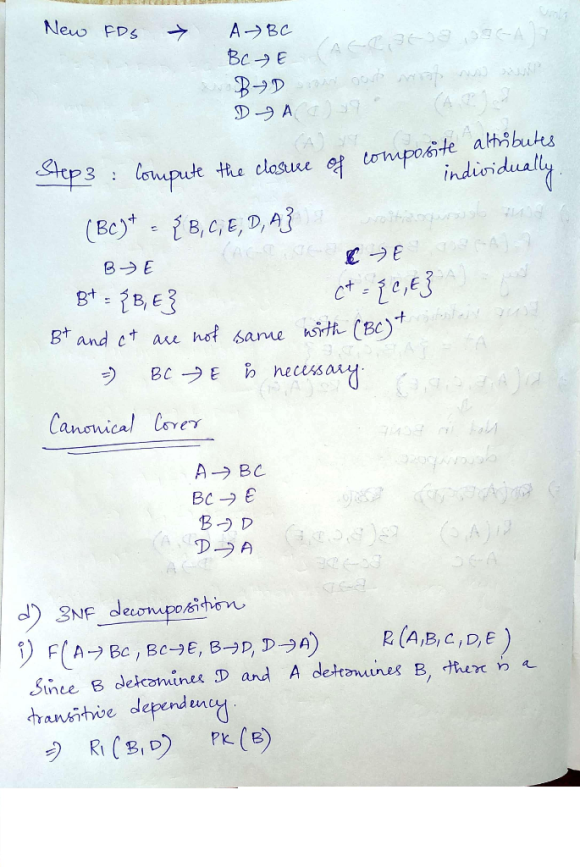 New FDs → A→BC
BC→E
B→D
D→A
Step 3 : Compute the closure of composite attributes individually.
(BC)⁺ = {B, C, E, D, A}
B→E C→E
B⁺ = {B, E} C⁺ = {C, E}
B⁺ and C⁺ are not same with (BC)⁺
⇒ BC→E is necessary.
Canonical Cover
A→BC
BC→E
B→D
D→A
d) 3NF decomposition
i) F(A→BC, BC→E, B→D, D→A) R(A,B,C,D,E)
Since B determines D and A determines B, there is a
transitive dependency.
⇒ R1(B,D) PK(B)